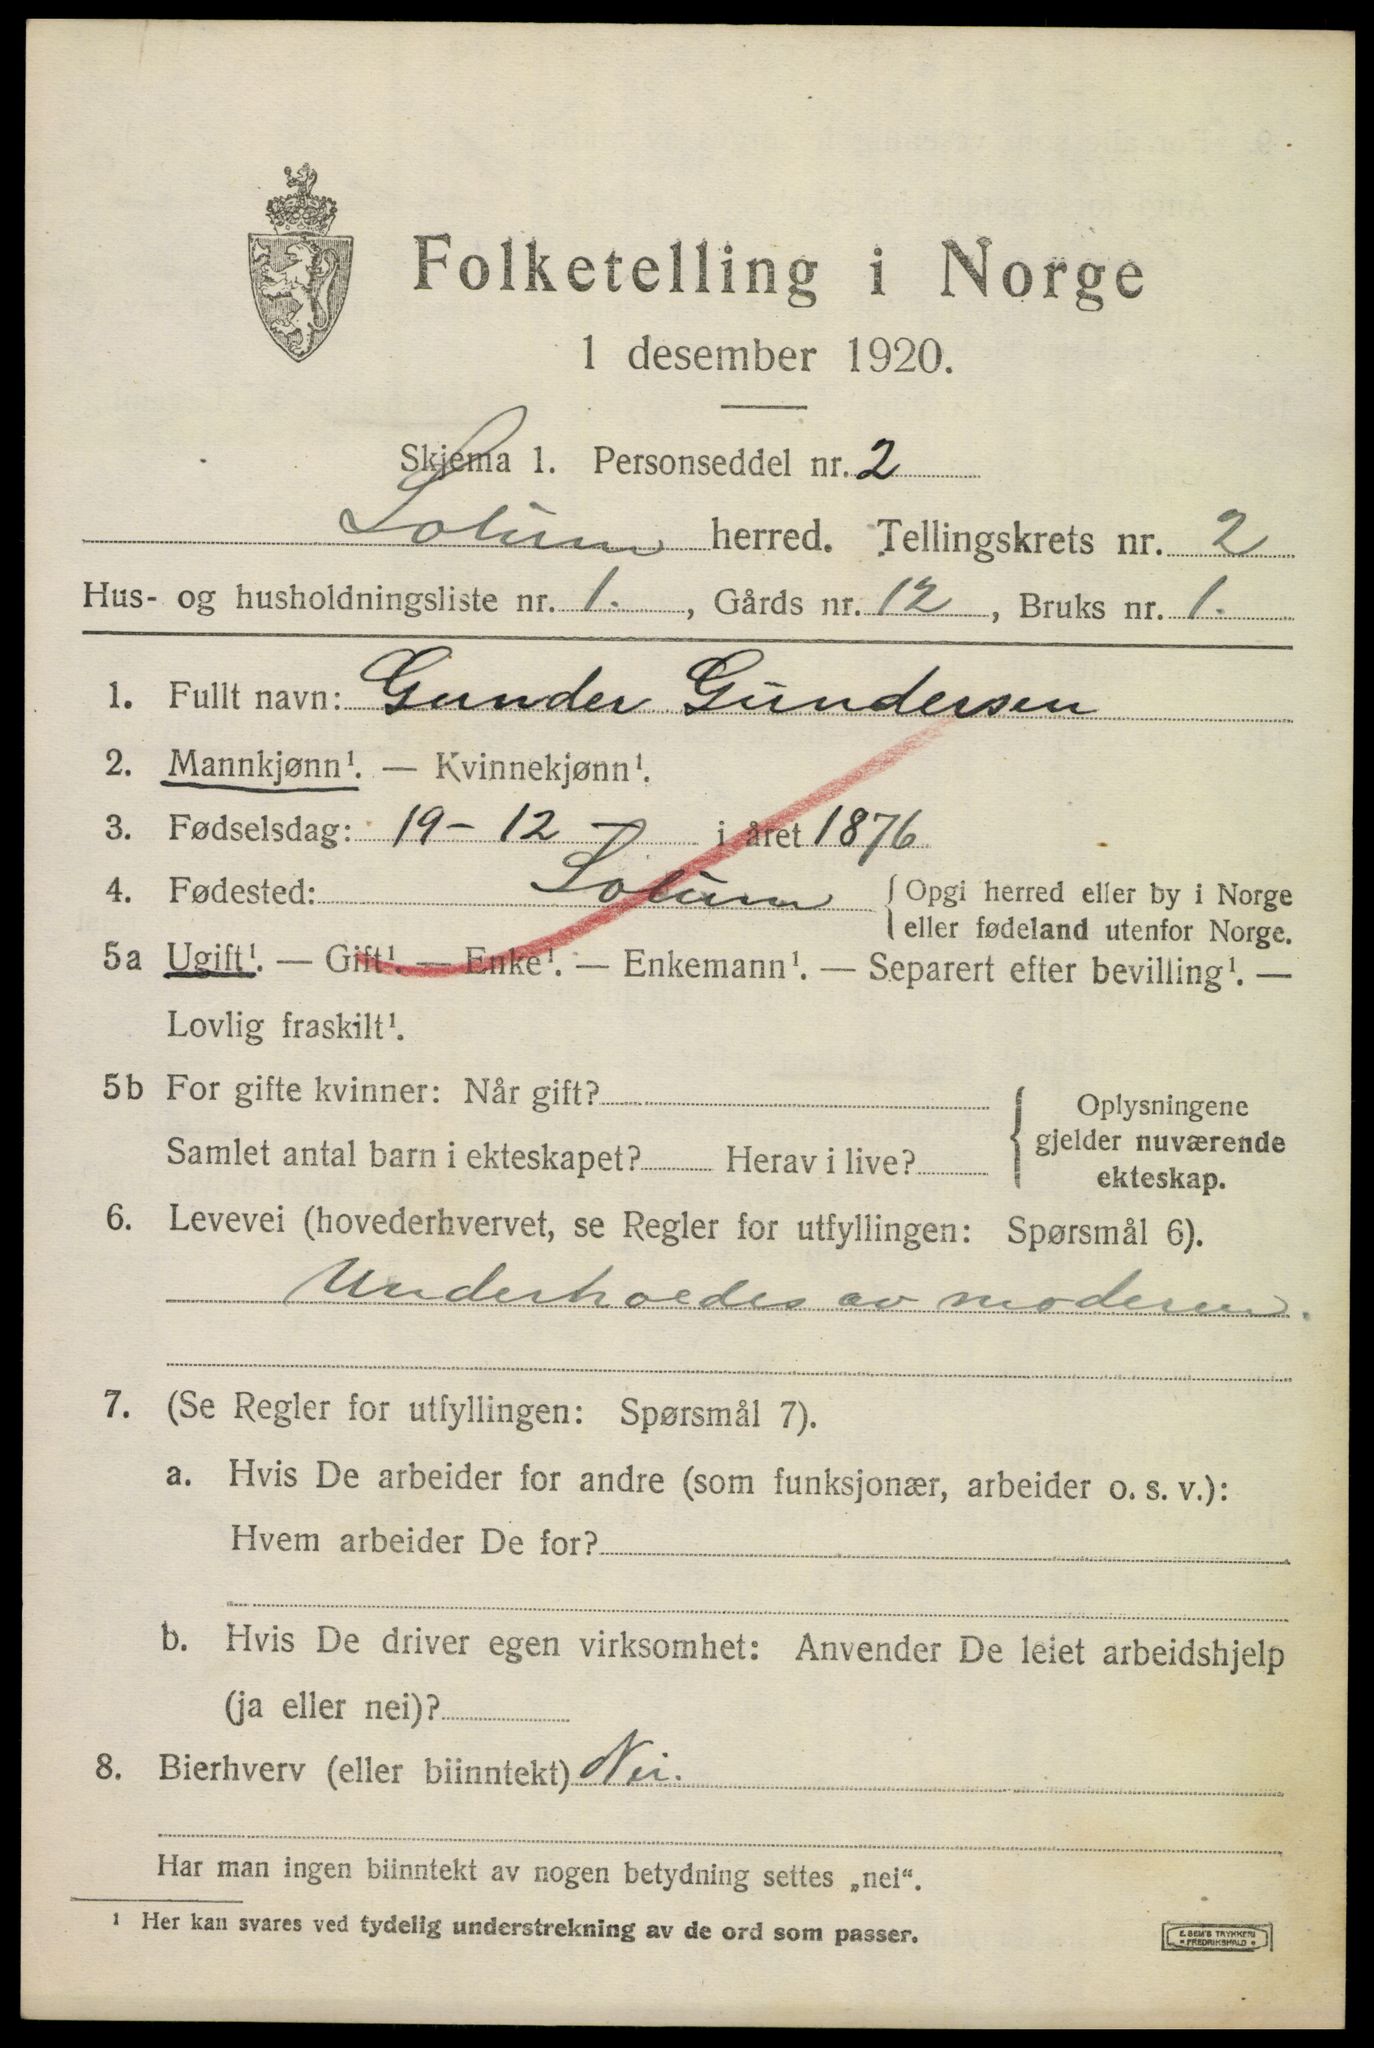 Folketelling i Norge
1 desember 1920.
Skjema 1. Personseddel nr. 2
Solum herred. Tellingskrets nr. 2
Hus- og husholdningsliste nr. 1. , Gårds nr. 12 , Bruks nr. 1.
1. Fullt navn: Gunder Gundersen
2. Mannkjønn¹. — Kvinnekjønn¹.
3. Fødselsdag: 19 – 12 – i året 1876
4. Fødested: Solum { Opgi herred eller by i Norge
eller fødeland utenfor Norge.
5a Ugift¹. — Gift¹. — Enke¹. — Enkemann¹. — Separert efter bevilling¹. —
Lovlig fraskilt¹.
5b For gifte kvinner: Når gift?
Samlet antal barn i ekteskapet? Herav i live?
{ Oplysningene
gjelder nuværende
ekteskap.
6. Levevei (hovederhvervet, se Regler for utfyllingen: Spørsmål 6).
Underholdes av moderen.
7. (Se Regler for utfyllingen: Spørsmål 7).
a. Hvis De arbeider for andre (som funksjonær, arbeider o. s. v.):
Hvem arbeider De for?
b. Hvis De driver egen virksomhet: Anvender De leiet arbeidshjelp
(ja eller nei)?
8. Bierhverv (eller biinntekt) Nei.
Har man ingen biinntekt av nogen betydning settes „nei“.
¹ Her kan svares ved tydelig understrekning av de ord som passer.
E. SEM'S TRYKKERI
FREDRIKSHALD